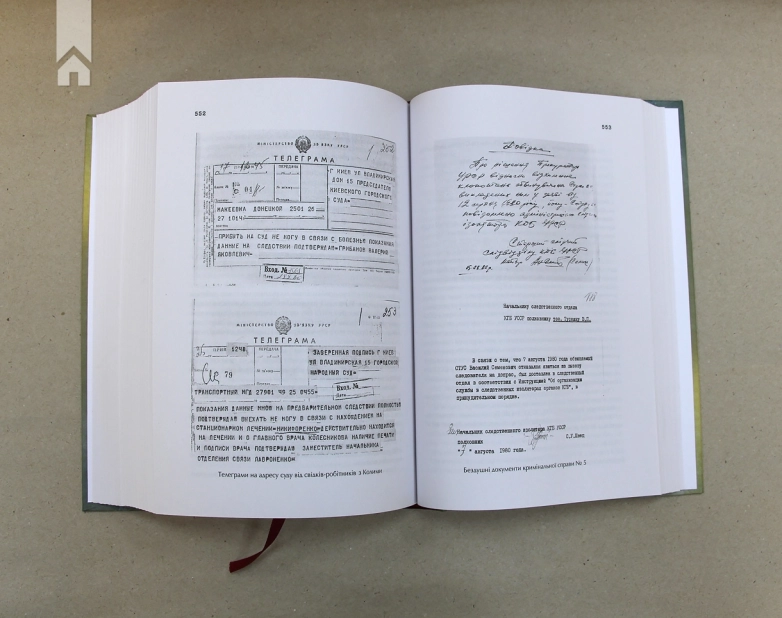 552
МІНІСТЕРСТВО ЗВ'ЯЗКУ УРСР
ТЕЛЕГРАМА
1 352
ПЕРЕДАЧА
Г КИЕВ УЛ ВЛАДИМИРСКАЯ
ДОМ 15 ПРЕДСЕДАТЕЛЮ
КИЕВСКОГО ГОРОДСКОГО
СУДА=
МАКЕЕВКА ДОНЕЦКОЙ 2501 26
27 1014=
=ПРИБИТЬ НА СУД НЕ МОГУ В СВЯЗИ С БОЛЕЗНЬЮ ПОКАЗАНИЯ
ДАННЫЕ НА СЛЕДСТВИИ ПОДТВЕРЖДАЮ=ГРИБАНОВ ВАЛЕРИЙ
ЯКОВЛЕВИЧ=
Вход. №
МІНІСТЕРСТВО ЗВ'ЯЗКУ УРСР
1 353
ТЕЛЕГРАМА
1240
79
ПЕРЕДАЧА
ЗАВЕРЕННАЯ ПОДПИСЬ Г КИЕВ
УЛ ВЛАДИМИРСКАЯ 15 ГОРОДСКОЙ
НАРОДНЫЙ СУД=
Вход. №
ТРАНСПОРТНЫЙ МГД 27901 49 25 0455=
ПОКАЗАНИЯ ДАННЫЕ МНОЮ НА ПРЕДВАРИТЕЛЬНОМ СЛЕДСТВИИ ПОЛНОСТЬЮ
ПОДТВЕРЖДАЮ ВЫЕХАТЬ НЕ МОГУ В СВЯЗИ С НАХОЖДЕНИЕМ НА
СТАЦИОНАРНОМ ЛЕЧЕНИИ=НИКИФОРЕНКО=ДЕЙСТВИТЕЛЬНО НАХОДИТСЯ
НА ЛЕЧЕНИИ И О ГЛАВНОГО ВРАЧА КОЛЕСНИКОВА НАЛИЧИЕ ПЕЧАТИ
И ПОДПИСИ ВРАЧА ПОДТВЕРЖДАЮ ЗАМЕСТИТЕЛЬ НАЧАЛЬНИКА
ОТДЕЛЕНИЯ СВЯЗИ ЛАВРОНЕНКО=
Телеграми на адресу суду від свідків-робітників з Колими
553
Довідка
Про рішення Прокуратури
УРСР
12
КДБ УРСР
Старший слідчий
слідвідділу КДБ УРСР
Начальнику следственного отдела
КГБ УССР полковнику тов. Туркину В.П.
В связи с тем, что 7 августа 1980 года обвиняемый
СТУС Василий Семенович отказался явиться по вызову
следователя на допрос, был доставлен в следственный
отдел в соответствии с Инструкцией "Об организации
службы в следственных изоляторах органов КГБ", в
принудительном порядке.
Начальник следственного изолятора КГБ УССР
полковник
"7" августа 1980 года.
Бездушні документи кримінальної справи № 5